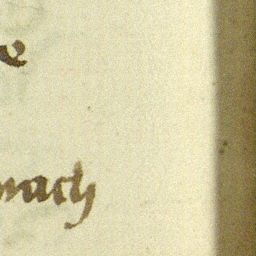 e
nach